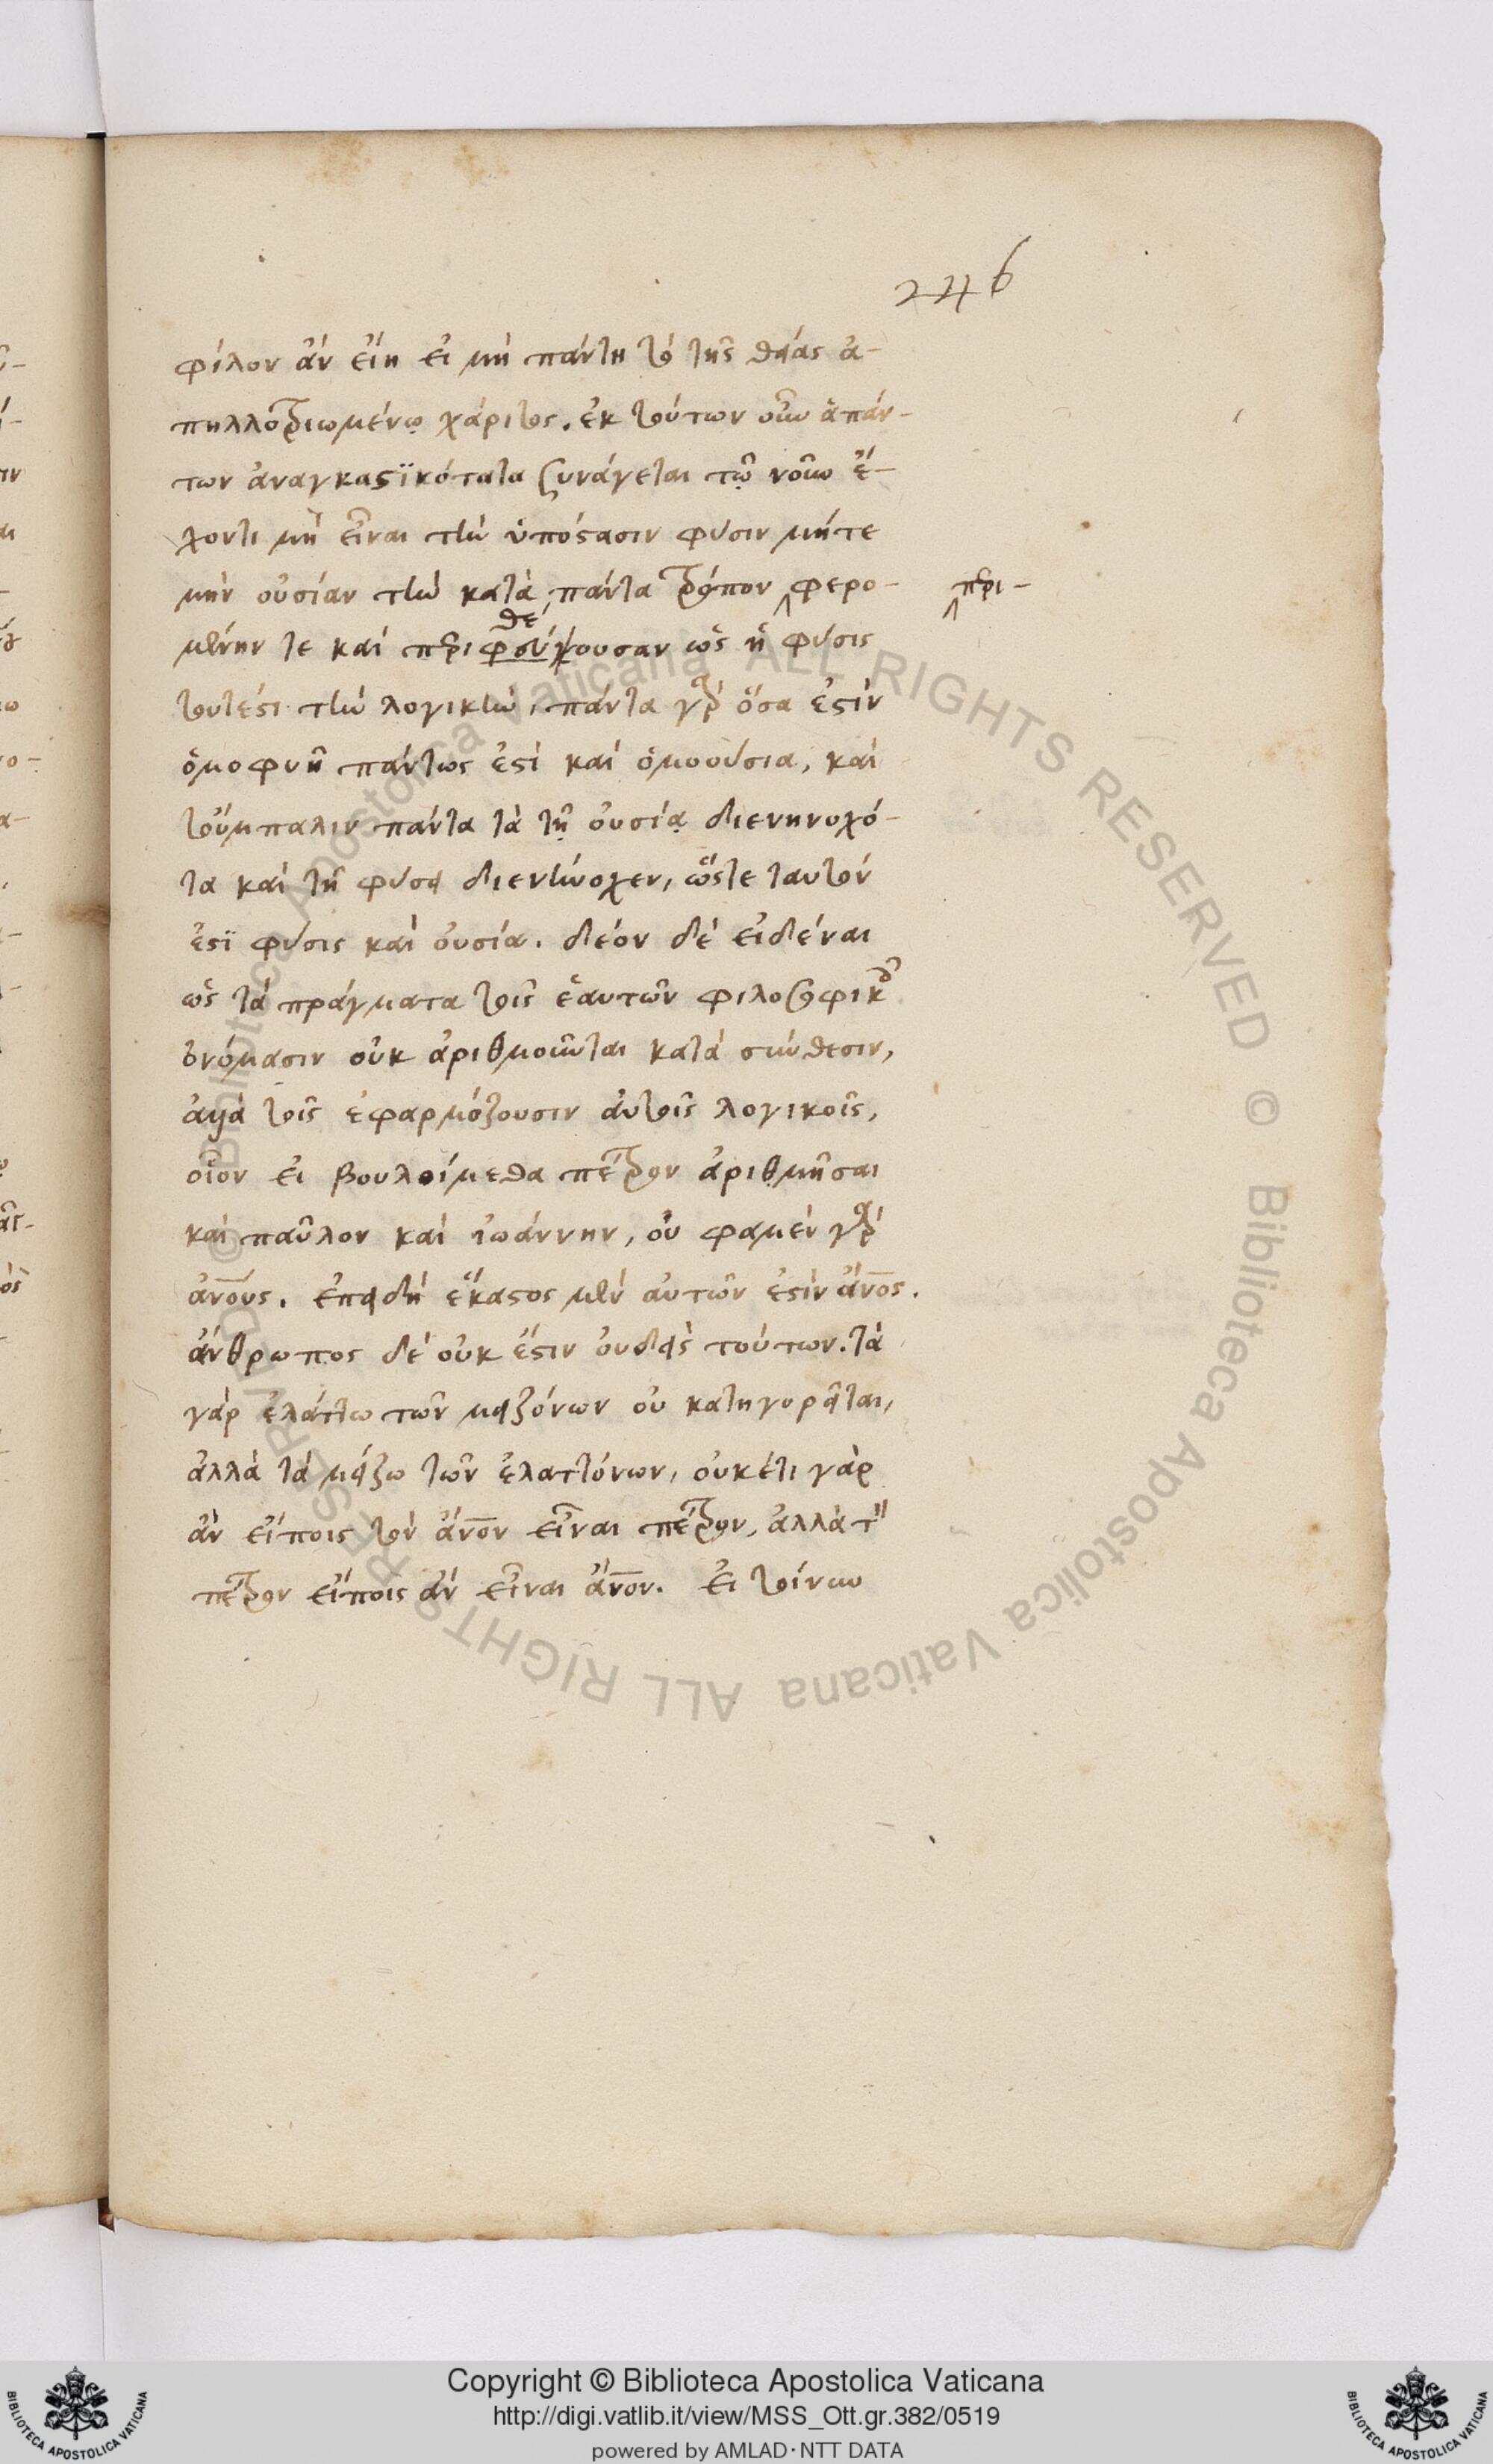 246
φίλον ἂν εἴη εἰ μὴ πάντη τῷ τῆς θείας ἀ-
πηλλοτριωμένῳ χάριτος. ἐκ τούτων οὖν ἁπάν-
των ἀναγκαστϊκότατα συνάγεται τῷ νοῦν ἔ-
χοντι μὴ εἶναι τὴν ὑπόστασιν φύσιν μήτε
μὴν οὐσίαν τὴν κατὰ πάντα τρόπον ‸ φερο- ‸ περι-
θέ
μένην τε καὶ περιφρσύχουσαν ὡς ἡ φύσις
τουτέστι τὴν λογικὴν, πάντα γὰρ ὅσα ἐστὶν
ὁμοφυῆ πάντως ἐστὶ καὶ ὁμοούσια, καὶ
τοὔμπαλιν πάντα τὰ τῇ οὐσίᾳ διενηνοχό-
τα καὶ τῇ φύσει διενήνοχεν, ὥστε ταυτόν
ἐστϊ φύσις καὶ οὐσία. δέον δὲ εἰδέναι
ὡς τὰ πράγματα τοῖς ἑαυτῶν φιλοσοφικοῖς
ὀνόμασιν οὐκ ἀριθμοῦνται κατὰ σύνθεσιν,
ἀλλὰ τοῖς ἐφαρμόζουσιν αὐτοῖς λογικοῖς,
οἷον εἰ βουλοίμεθα πέτρον ἀριθμῆσαι
καὶ παῦλον καὶ ἰωάννην, οὐ φαμὲν γὰρ
ἀνους. ἐπειδὴ ἕκαστος μὲν αὐτῶν ἐστὶν ἄνος.
ἄνθρωπος δὲ οὐκ ἔστιν οὐδεὶς τούτων. τὰ
γὰρ ἐλάττω τῶν μειζόνων οὐ κατηγορεῖται,
ἀλλὰ τὰ μείζω τῶν ἐλαττόνων, οὐκέτι γὰρ
ἂν εἴποις τὸν ἄνον εἶναι πέτρον, ἀλλὰ τὸν
πέτρον εἴποις ἂν εἶναι ἄνον. Εἰ τοίνυν
© Biblioteca Apostolica Vaticana ALL RIGHTS RESERVED © Biblioteca Apostolica Vaticana ALL RIGHTS RESERVED
BIBLIOTECA APOSTOLICA VATICANA
Copyright © Biblioteca Apostolica Vaticana
http://digi.vatlib.it/view/MSS_Ott.gr.382/0519
powered by AMLAD·NTT DATA
BIBLIOTECA APOSTOLICA VATICANA